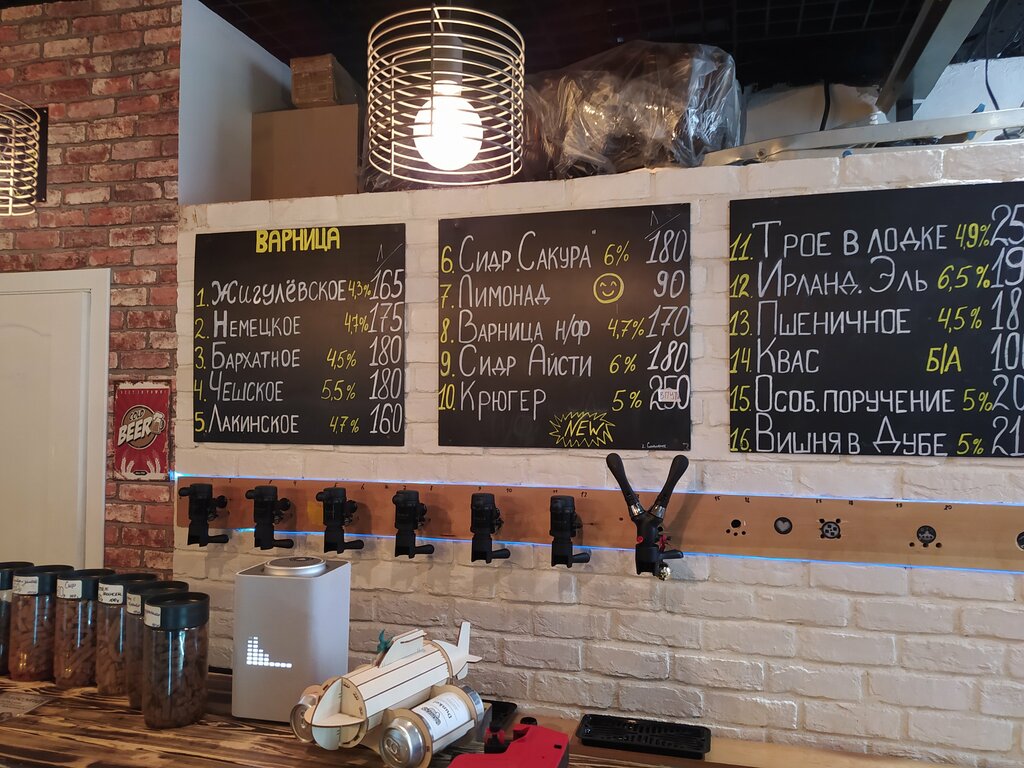 ВАРНИЦА
Л/
1. Жигулёвское 4,3% 165
2. Немецкое 4,7% 175
3. Бархатное 4,5% 180
4. Чешское 5,5% 180
5. Лакинское 4,7% 160
Л/
6. Сидр. Сакура" 6% 180
7. Лимонад 90
8. Варница н/ф 4,7% 170
9. Сидр Айсти 6% 180
10. Крюгер 5% 250
NEW
11. Трое в лодке 4,9% 25
12 Ирланд. Эль 6,5% 19
13. Пшеничное 4,5% 18
14 Квас Б/А 100
15. Особ. поручение 5% 20
16. Вишня в Дубе 5% 21
COLD
BEER
Сыр